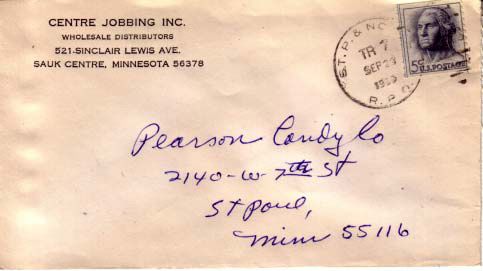 CENTRE JOBBING INC.
WHOLESALE DISTRIBUTORS
521 SINCLAIR LEWIS AVE.
SAUK CENTRE, MINNESOTA 56378
ST. P. & NO
TR 7
SEP 23
R.P.O.
5¢ U.S. POSTAGE
Pearson Candy Co
2140-W-7th St
St Paul,
Minn 55116